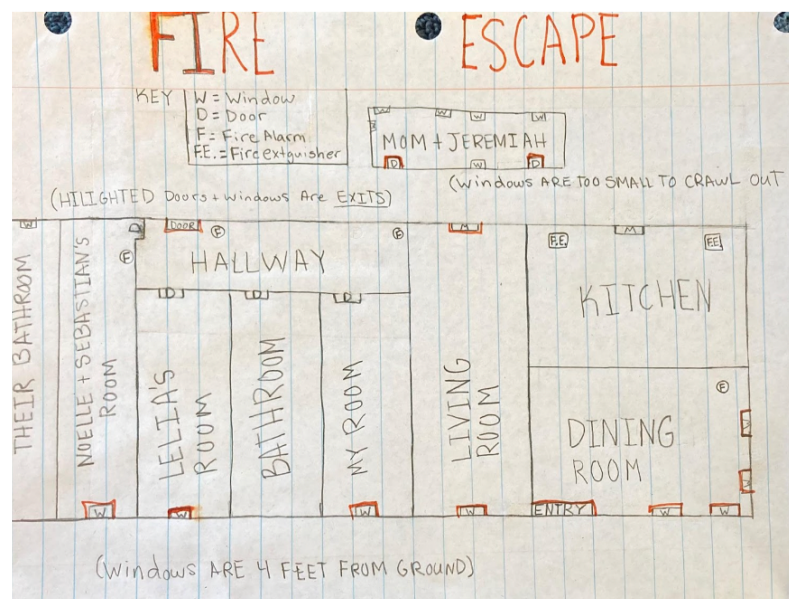 FIRE ESCAPE
KEY
W = Window
D = Door
F = Fire Alarm
F.E. = Fire extguisher
W W W W
W
MOM + JEREMIAH
D W D
(WINDOWS ARE TOO SMALL TO CRAWL OUT
(HILIGHTED Doors + windows Are EXITS)
W
D
DOOR
F
F
F
HALLWAY
D D D
THEIR BATHROOM
NOELLE + SEBASTIAN'S
ROOM
LELIA'S
ROOM
BATHROOM
MY ROOM
LIVING
ROOM
F.E.
F.E.
KITCHEN
F
DINING
ROOM
W W W W
ENTRY
W W
(Windows ARE 4 FEET FROM GROUND)